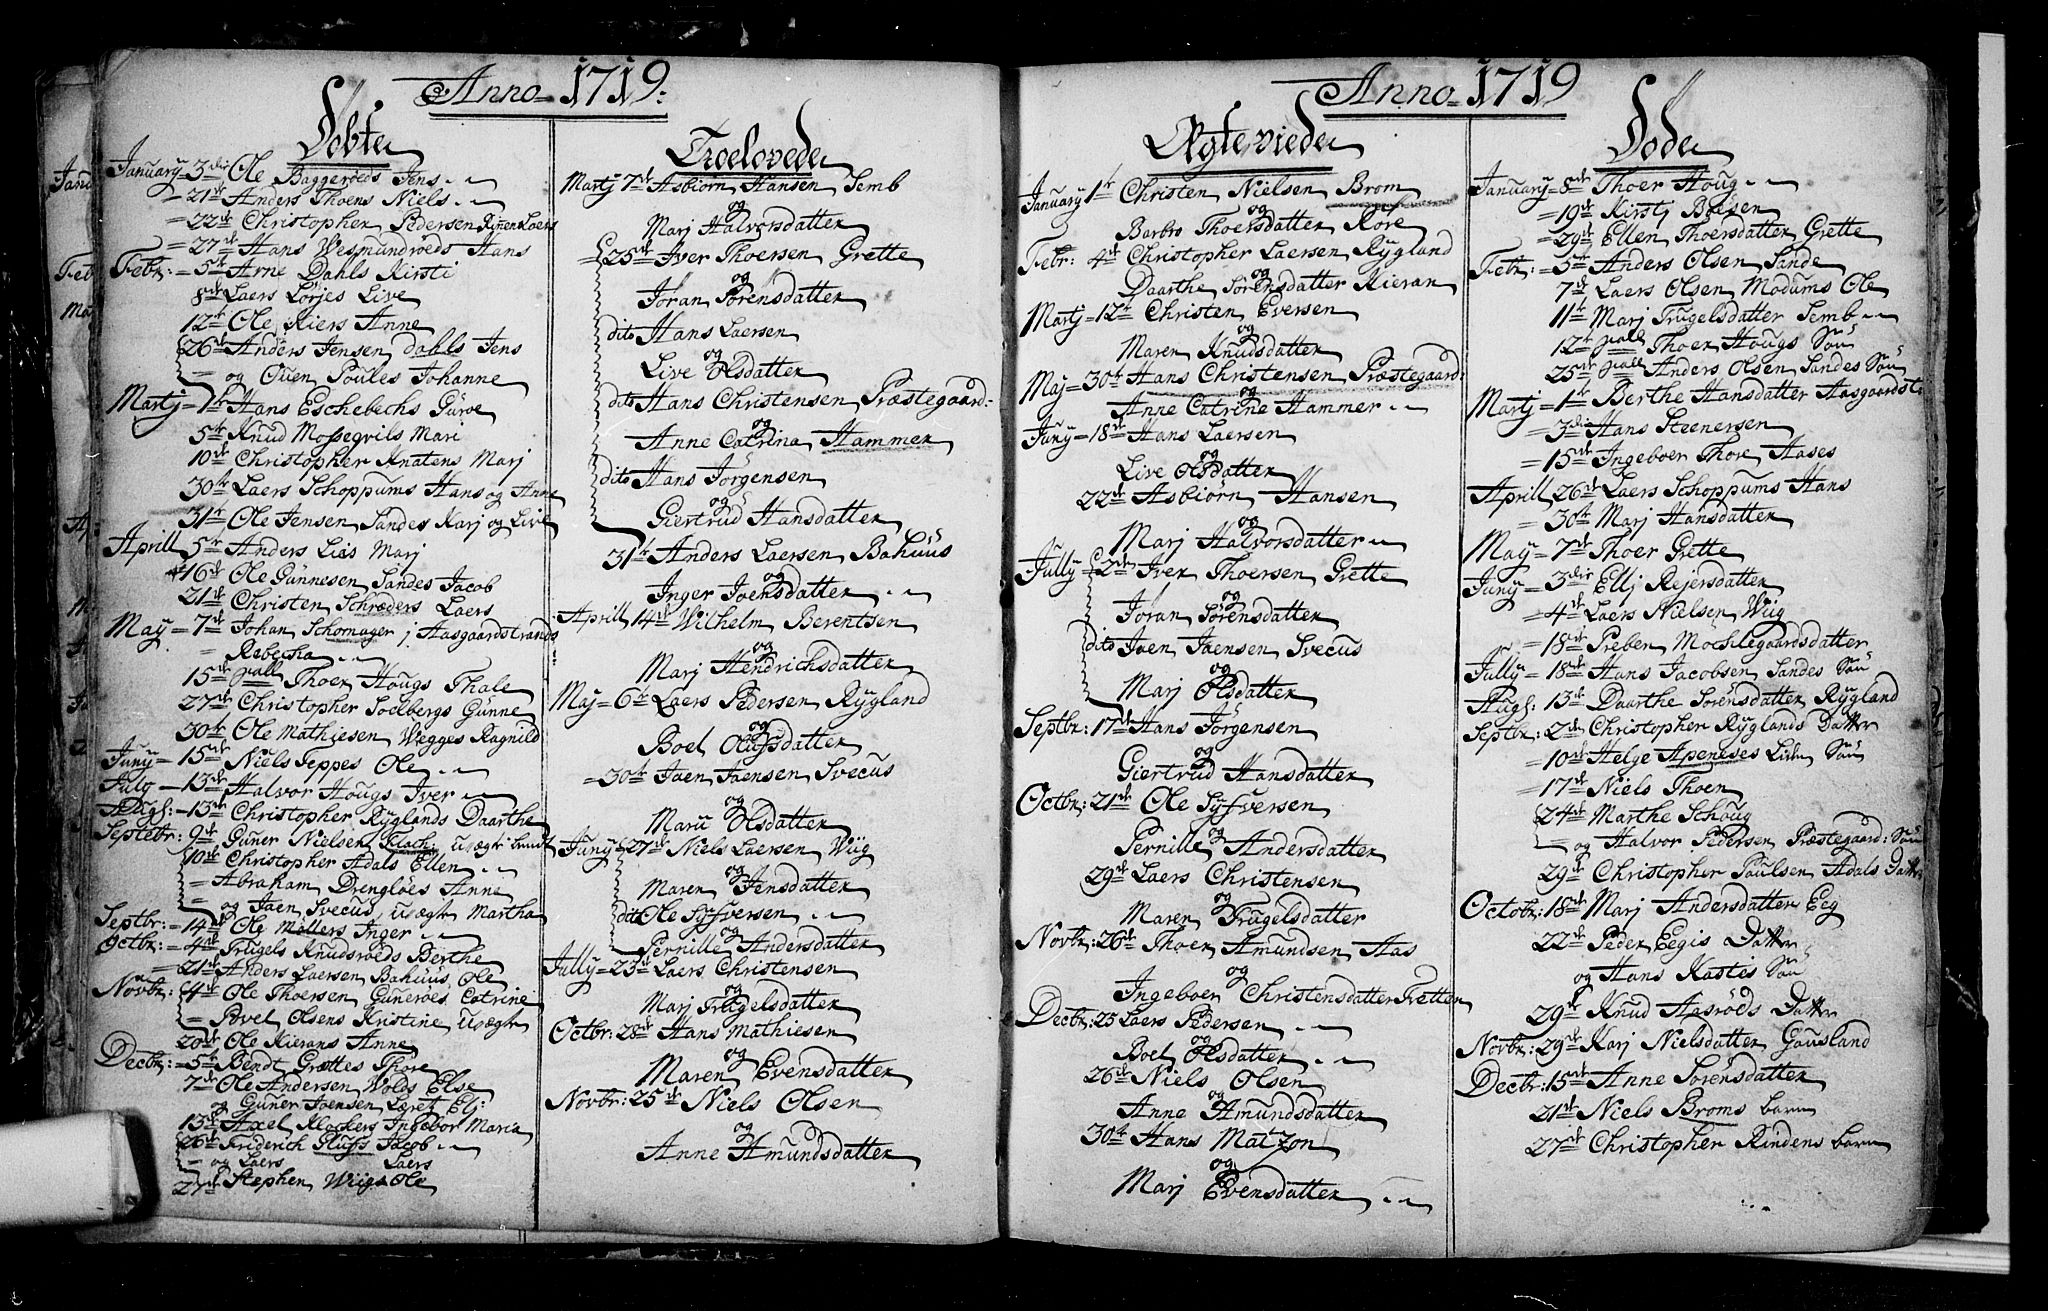 Anno 1719:
Döbte
January = 3die Ole Baggeröeds Jens
= 21de Anders Thoens Niels
= 22de Christopher Pedersen Rinen Laers
= 27de Hans Wesmundröeds Hans
Febr: = 5te Arne Dahls Kirsti
8de Laers Lörjes Live
12te Ole Kiers Anne
26de Anders Jensen dahls Jens
= og Ouen Poules Johanne
Martj = 1te Hans Eschebechs Gurve
5te Knud Mossegvils Mari
10de Christopher Knatens Marj
30te Laers Schoppums Hans og Anne
31te Ole Jensen Sandes Karj og Live
Aprill 5te Anders Liös Marj
16de Ole Günnesen Sandes Jacob
21de Christen Schröders Laers
May = 7de Johan Schomager j Aasgaardstrands
= Rebecha
15de pull Thoer Hougs Thale
27de Christopher Solbergs Günne
30te Ole Mathiesen Wegges Ragnild
Juny = 15de Niels Jeppes Ole
July = 13de Halvor Hougs Iver
Augs: = 13de Christopher Ryglands Daarthe
Septebr: 9de Guner Nielsen Flachi uægte bundt
10de Christopher Adals Ellen
= Abraham Drenglöes Anne
= og Jaen Svecus, uægte Martha
Septbr: = 14de Ole Möllers Inger
Octbr: = 4de Trugels Knudsröeds Berthe
= 21de Anders Laersen Bahuus Ole
Novbr: 4de Ole Thoersen Guneröes Catrine
= Povel Olsens Kristine uægte
20de Ole Kierans Anne
Decbr: = 5te Bendt Grættes Thore
7de Ole Andersen Wolds Else
og Guner Joensen Læret Elj:
13de Axel Klochers Ingebor Maria
26de Friderich Russ Jacob
= og Laers Laers
27de Stephen Wiigs Ole
Troelovede
Martj 7de Asbiörn Hansen Semb
og
Marj Halvorsdatter
25de Iver Thoersen Grette
og
Jöran Sörensdatter
dito Hans Laersen
og
Live Olsdatter
dito Hans Christensen Præstegaard:
og
Anne Catrina Hammer
dito Hans Jörgensen
og
Giertrud Hansdatter
31te Anders Laersen Bahuus
og
Inger Joensdatter
Aprill 14de Wilhelm Berentsen
og
Marj Hendrichsdatter
Maj = 6te Laers Pedersen Rygland
og
Boel Olufsdatter
= 30te Jaen Jaensen Svecus
og
Maru Olsdatter
Juny = 27de Niels Laersen Wiig
og
Maren Jensdatter
dito Ole Syfversen
og
Pernille Andersdatter
Jully = 23de Laers Christensen
og
Marj Trugelsdatter
Octbr: 28de Hans Mathiesen
og
Maren Evensdatter
Novbr: 25de Niels Olsen
og
Anne Amundsdatter
Anno 1719
Ægtevieder
January 1te Christen Nielsen Brom
og
Barbro Thoersdatter Röre
Febr: 4de Christopher Laersen Rygland
og
Daarthe Sörensdatter Kieran
Martj = 12te Christen Eversen
og
Maren Knudsdatter
Maj = 30te Hans Christensen Præstegaard:
og
Anne Catrine Hammer
Juny = 18de Hans Laersen
og
Live Olsdatter
22de Asbiörn Hansen
og
Marj Halvorsdatter
Jully 2de Iver Thoersen Grette
og
Jöran Sörensdatter
dito Jaen Jaensen Svecus
og
Marj Olsdatter
Septbr: 17de Hans Jörgensen
og
Giertrud Hansdatter
Octbr: 21de Ole Syfversen
og
Pernille Andersdatter
29de Laers Christensen
og
Maren Trugelsdatter
Novbr: 26de Thoer Amundsen Aas
og
Ingeboer Christensdatter Fretten
Decbr: 25 Laers Pedersen
og
Boel Olsdatter
26de Niels Olsen
og
Anne Amundsdatter
30te Hans Matzon
og
Marj Evensdatter
Döde
January = 8de Thoer Houg
= 19de Kirstj Boesen
= 29de Ellen Thoersdatter Grette
Febr: = 5te Anders Olsen Sande
7de Laers Olsen Modums Ole
11te Marj Trugelsdatter Semb
12te pull Thoer Hougs Sön
25de pull Anders Olsen Sandes Sön
Martj = 1te Berthe Hansdatter Aasgaardst:
= 3die Hans Steenersen
= 15de Ingeboer Thore Aases
Aprill 26de Laers Schoppums Hans
= 30te Marj Hansdatter
May = 7de Thoer Grette
Juny = 3die Ellj Rejersdatter
= 4de Laers Nielsen Wiig
= 18de Preben Mochlegaardsdatter
Jully = 18de Hans Jacobsen Sandes Sön
Augs: 13de Daarthe Sörensdatter Rygland
Septbr: = 2de Christopher Ryglands Datter
= 10de Helge Apeneses Liden Sön
= 17de Niels Thoen
24de Marthe Schoug
= og Halvor Pedersen Præstegaard: Sön
29de Christopher Paulsen Adals Datter
Octobr: 18de Marj Andersdatter Eeg
22de Peder Eegis Datter
og Hans Kastis Sön
29de Knud Aasröds Datter
Novbr: 29de Karj Nielsdatter Gausland
Decbr: 15de Anne Sörensdatter
21de Niels Broms barn
27de Christopher Rindens barn